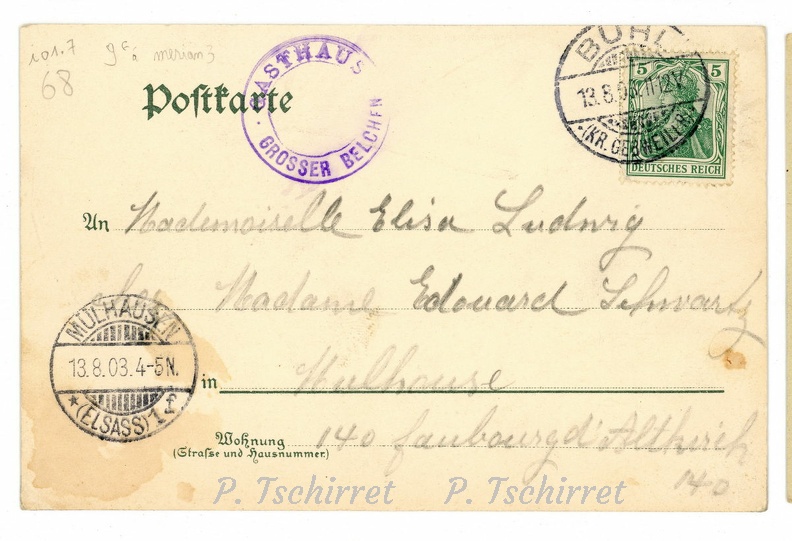 68
Postkarte
GASTHAUS
GROSSER BELCHEN
BÜHL
13.8.03.11-12V.
(KR. GEBWEILER)
5 5
DEUTSCHES REICH
An Mademoiselle Elisa Ludwig
chez Madame Edouard Schwartz
MÜLHAUSEN
13.8.03.4-5N.
(ELSASS) 1
in Mulhouse
Wohnung
(Straße und Hausnummer)
140 faubourg d'Altkirch
140
P. Tschirret P. Tschirret